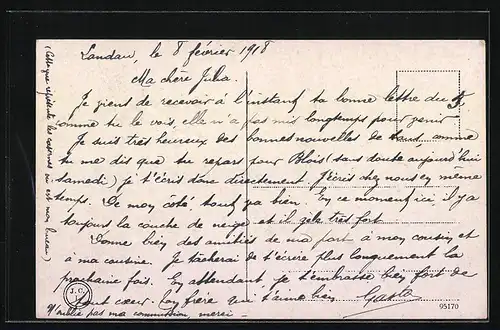 Landau, le 8 février 1918
Ma chère Julia.
Je viens de recevoir à l'instant ta bonne lettre du
comme tu le vois, elle n'a pas mis longtemps pour venir.
Je suis très heureux des bonnes nouvelles de tout comme
tu me dis que tu repars pour Blois (sans doute aujourd'hui
samedi) je t'écris donc directement. J'écris chez nous en même
temps. De mon coté, tout va bien. En ce moment ici il y a
toujours la couche de neige et il gèle très fort
Donne bien des amitiés de ma part à mon cousin et
à ma cousine. Je tacherai de t'écrire plus longuement la
prochaine fois. En attendant, je t'embrasse bien fort de
tout coeur. Ton frère qui t'aime bien Gaston
N'oublie pas ma commission, merci -
(Cette vue représente les casernes où est mon bureau)
J.C.
95170